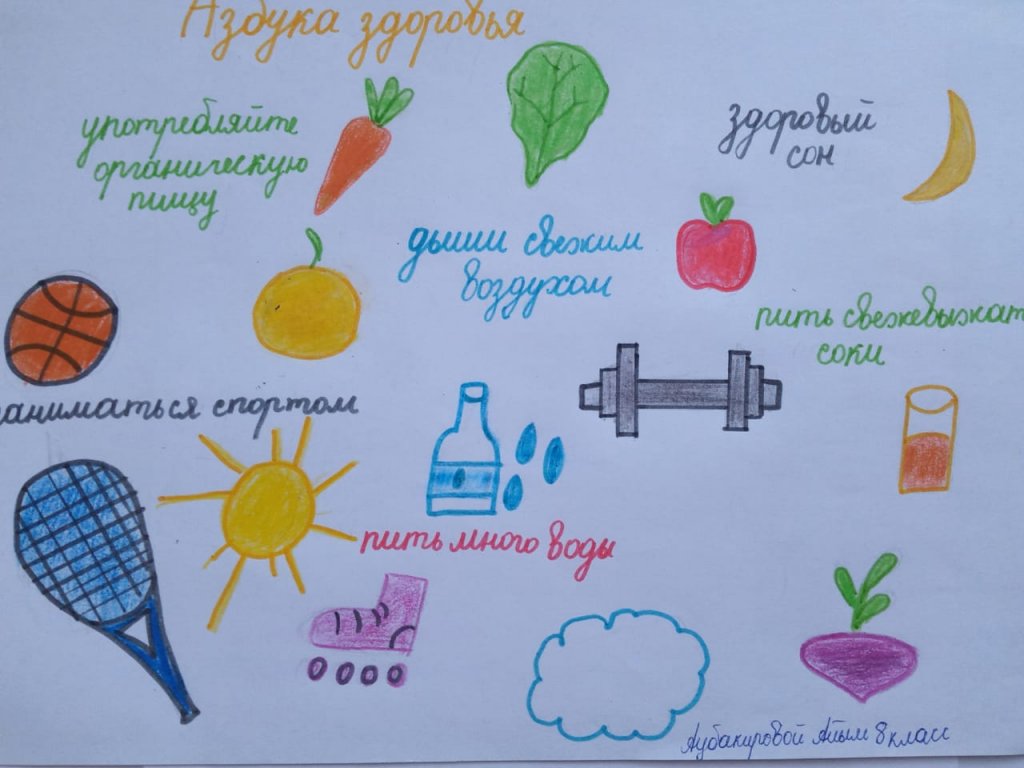 Азбука здоровья
употребляйте
органическую
пищу
здоровый
сон
дыши свежим
воздухом
пить свежевыжат
соки
заниматься спортом
пить много воды
Аубакировой Айым 8 класс